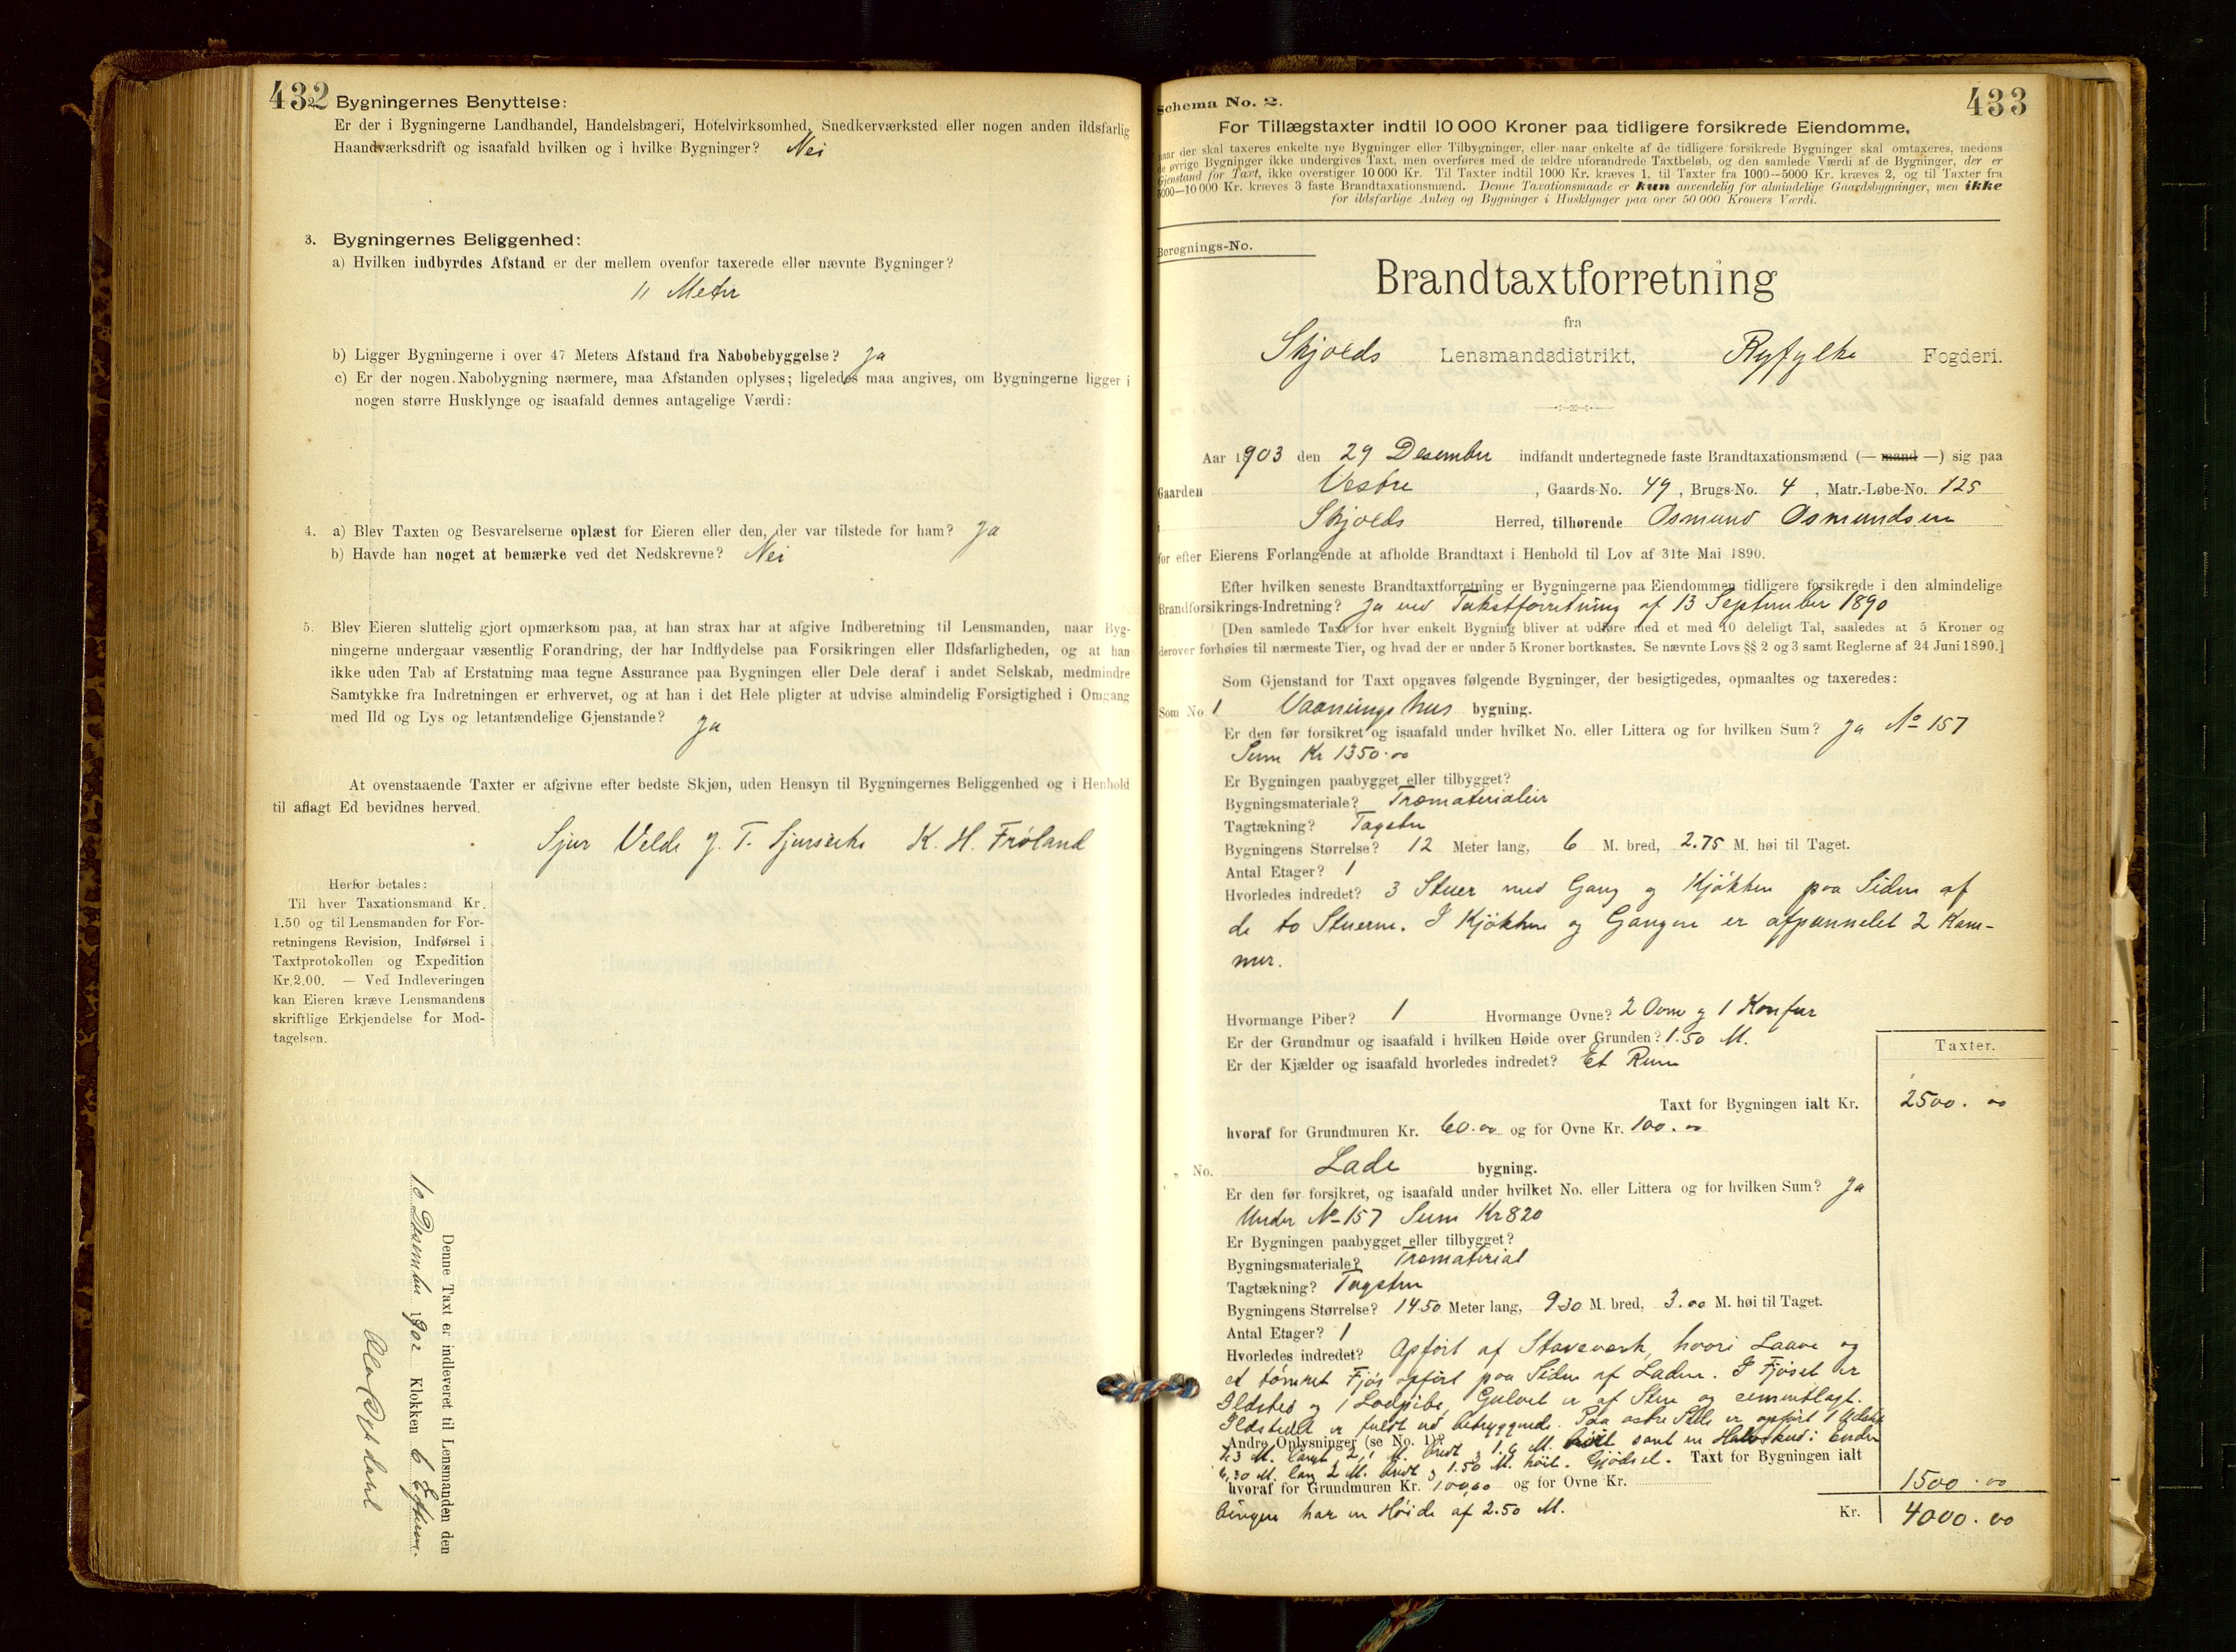 432
2. Bygningernes Benyttelse:
Er der i Bygningerne Landhandel, Handelsbageri, Hotelvirksomhed, Snedkerværksted eller nogen anden ildsfarlig
Haandværksdrift og isaafald hvilken og i hvilke Bygninger? Nei
3. Bygningernes Beliggenhed:
a) Hvilken indbyrdes Afstand er der mellem ovenfor taxerede eller nævnte Bygninger?
11 Meter
b) Ligger Bygningerne i over 47 Meters Afstand fra Nabobebyggelse? Ja
c) Er der nogen Nabobygning nærmere, maa Afstanden oplyses; ligeledes maa angives, om Bygningerne ligger i
nogen større Husklynge og isaafald dennes antagelige Værdi:
4. a) Blev Taxten og Besvarelserne oplæst for Eieren eller den, der var tilstede for ham? Ja
b) Havde han noget at bemærke ved det Nedskrevne? Nei
5. Blev Eieren sluttelig gjort opmærksom paa, at han strax har at afgive Indberetning til Lensmanden, naar Byg-
ningerne undergaar væsentlig Forandring, der har Indflydelse paa Forsikringen eller Ildsfarligheden, og at han
ikke uden Tab af Erstatning maa tegne Assurance paa Bygningen eller Dele deraf i andet Selskab, medmindre
Samtykke fra Indretningen er erhvervet, og at han i det Hele pligter at udvise almindelig Forsigtighed i Omgang
med Ild og Lys og letantændelige Gjenstande? Ja
At ovenstaaende Taxter er afgivne efter bedste Skjøn, uden Hensyn til Bygningernes Beliggenhed og i Henhold
til aflagt Ed bevidnes herved.
Sjur Velde J. T. K. H. Frøland
Herfor betales:
Til hver Taxationsmand Kr.
1.50 og til Lensmanden for For-
retningens Revision, Indførsel i
Taxtprotokollen og Expedition
Kr. 2.00. — Ved Indleveringen
kan Eieren kræve Lensmandens
skriftlige Erkjendelse for Mod-
tagelsen.
Denne Taxt er indleveret til Lensmanden den
10 Desember 1902 Klokken 6 Efterm.
433
Schema No. 2.
For Tillægstaxter indtil 10 000 Kroner paa tidligere forsikrede Eiendomme,
naar der skal taxeres enkelte nye Bygninger eller Tilbygninger, eller naar enkelte af de tidligere forsikrede Bygninger skal omtaxeres, medens
de øvrige Bygninger ikke undergives Taxt, men overføres med de ældre uforandrede Taxtbeløb, og den samlede Værdi af de Bygninger, der er
Gjenstand for Taxt, ikke overstiger 10 000 Kr. Til Taxter indtil 1000 Kr. kræves 1, til Taxter fra 1000—5000 Kr. kræves 2, og til Taxter fra
5000—10 000 Kr. kræves 3 faste Brandtaxationsmænd. Denne Taxationsmaade er kun anvendelig for almindelige Gaardsbygninger, men ikke
for ildsfarlige Anlæg og Bygninger i Husklynger paa over 50 000 Kroners Værdi.
Beregnings-No.
Brandtaxtforretning
fra
Skjolds Lensmandsdistrikt, Ryfylke Fogderi.
Aar 1903 den 29 Desember indfandt undertegnede faste Brandtaxationsmænd (— mand —) sig paa
Gaarden Vestre, Gaards-No. 49, Brugs-No. 4, Matr.-Løbe-No. 125
i Skjolds Herred, tilhørende Osmund Osmundsen
for efter Eierens Forlangende at afholde Brandtaxt i Henhold til Lov af 31te Mai 1890.
Efter hvilken seneste Brandtaxtforretning er Bygningerne paa Eiendommen tidligere forsikrede i den almindelige
Brandforsikrings-Indretning? Ja ved Takstforretning af 13 September 1890
[Den samlede Taxt for hver enkelt Bygning bliver at udføre med et med 10 deleligt Tal, saaledes at 5 Kroner og
derover forhøies til nærmeste Tier, og hvad der er under 5 Kroner bortkastes. Se nævnte Lovs §§ 2 og 3 samt Reglerne af 24 Juni 1890.]
Som Gjenstand for Taxt opgaves følgende Bygninger, der besigtigedes, opmaaltes og taxeredes:
Som No. 1 Vaaningshus bygning.
Er den før forsikret og isaafald under hvilket No. eller Littera og for hvilken Sum? Ja No 157
Sum Kr 1350.00
Er Bygningen paabygget eller tilbygget?
Bygningsmateriale? Træmaterialier
Tagtækning? Tagsten
Bygningens Størrelse? 12 Meter lang, 6 M. bred, 2.75 M. høi til Taget.
Antal Etager? 1
Hvorledes indredet? 3 Stuer med Gang og Kjøkken paa Siden af
de to Stuerne. I Kjøkken og Gangen er afpannelet 2 Kam-
mer.
Hvormange Piber? 1 Hvormange Ovne? 2 Ovne og 1 Komfur
Er der Grundmur og isaafald i hvilken Høide over Grunden? 1.50 M.
Er der Kjælder og isaafald hvorledes indredet? Et Rum
Taxter.
Taxt for Bygningen ialt Kr. 2500.00
hvoraf for Grundmuren Kr. 60.00 og for Ovne Kr. 100.00
" No. Lade bygning.
Er den før forsikret, og isaafald under hvilket No. eller Littera og for hvilken Sum? Ja
Under No 157 Sum Kr 820
Er Bygningen paabygget eller tilbygget?
Bygningsmateriale? Træmaterial
Tagtækning? Tagsten
Bygningens Størrelse? 14.50 Meter lang, 9.30 M. bred, 3.00 M. høi til Taget.
Antal Etager? 1
Hvorledes indredet? Opført af Staveværk, hvori Laave og
et tømret Fjøs opført paa Siden af Laden. I Fjøset er
Ildsted og 1 Lodpibe, Gulvet er af Sten og cementlagt.
Ildstedet er fuldt ud betryggende. Paa østre Side er opført 1
Andre Oplysninger (se No. 1)? M. langt, 2,1 M. bredt, M. samt en Halvskud i Enden
6,30 M. lang 2 M. bredt og 1.50 M. høit. Gjødsel- Taxt for Bygningen ialt 1500.00
hvoraf for Grundmuren Kr. 100,00 og for Ovne Kr.
bingen har en Høide af 2.50 M. Kr. 4000.00